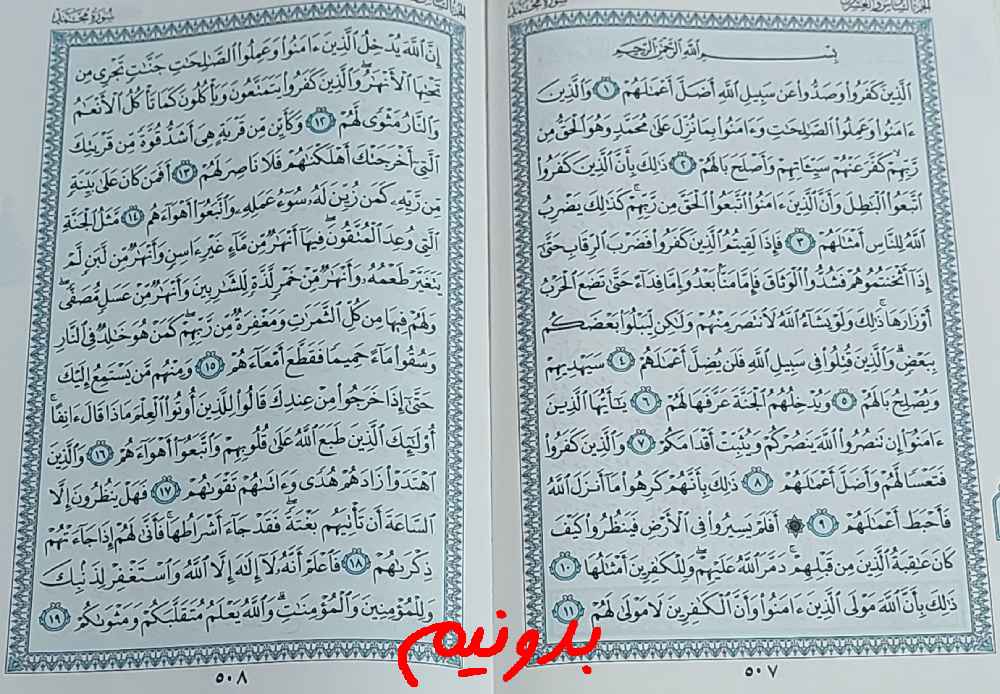 الجزء السادس والعشرون
سورة محمد
بِسْمِ ٱللَّهِ ٱلرَّحْمَٰنِ ٱلرَّحِيمِ
ٱلَّذِينَ كَفَرُوا۟ وَصَدُّوا۟ عَن سَبِيلِ ٱللَّهِ أَضَلَّ أَعْمَٰلَهُمْ ١ وَٱلَّذِينَ
ءَامَنُوا۟ وَعَمِلُوا۟ ٱلصَّٰلِحَٰتِ وَءَامَنُوا۟ بِمَا نُزِّلَ عَلَىٰ مُحَمَّدٍ وَهُوَ ٱلْحَقُّ مِن
رَّبِّهِمْ كَفَّرَ عَنْهُمْ سَيِّـَٔاتِهِمْ وَأَصْلَحَ بَالَهُمْ ٢ ذَٰلِكَ بِأَنَّ ٱلَّذِينَ كَفَرُوا۟
ٱتَّبَعُوا۟ ٱلْبَٰطِلَ وَأَنَّ ٱلَّذِينَ ءَامَنُوا۟ ٱتَّبَعُوا۟ ٱلْحَقَّ مِن رَّبِّهِمْ ۚ كَذَٰلِكَ يَضْرِبُ
ٱللَّهُ لِلنَّاسِ أَمْثَٰلَهُمْ ٣ فَإِذَا لَقِيتُمُ ٱلَّذِينَ كَفَرُوا۟ فَضَرْبَ ٱلرِّقَابِ حَتَّىٰٓ
إِذَآ أَثْخَنتُمُوهُمْ فَشُدُّوا۟ ٱلْوَثَاقَ فَإِمَّا مَنًّۢا بَعْدُ وَإِمَّا فِدَآءً حَتَّىٰ تَضَعَ ٱلْحَرْبُ
أَوْزَارَهَا ۚ ذَٰلِكَ وَلَوْ يَشَآءُ ٱللَّهُ لَٱنتَصَرَ مِنْهُمْ وَلَٰكِن لِّيَبْلُوَا۟ بَعْضَكُم
بِبَعْضٍ ۗ وَٱلَّذِينَ قُتِلُوا۟ فِى سَبِيلِ ٱللَّهِ فَلَن يُضِلَّ أَعْمَٰلَهُمْ ٤ سَيَهْدِيهِمْ
وَيُصْلِحُ بَالَهُمْ ٥ وَيُدْخِلُهُمُ ٱلْجَنَّةَ عَرَّفَهَا لَهُمْ ٦ يَٰٓأَيُّهَا ٱلَّذِينَ
ءَامَنُوٓا۟ إِن تَنصُرُوا۟ ٱللَّهَ يَنصُرْكُمْ وَيُثَبِّتْ أَقْدَامَكُمْ ٧ وَٱلَّذِينَ كَفَرُوا۟
فَتَعْسًا لَّهُمْ وَأَضَلَّ أَعْمَٰلَهُمْ ٨ ذَٰلِكَ بِأَنَّهُمْ كَرِهُوا۟ مَآ أَنزَلَ ٱللَّهُ
فَأَحْبَطَ أَعْمَٰلَهُمْ ٩ ۞ أَفَلَمْ يَسِيرُوا۟ فِى ٱلْأَرْضِ فَيَنظُرُوا۟ كَيْفَ
كَانَ عَٰقِبَةُ ٱلَّذِينَ مِن قَبْلِهِمْ ۚ دَمَّرَ ٱللَّهُ عَلَيْهِمْ ۖ وَلِلْكَٰفِرِينَ أَمْثَٰلُهَا ١٠
ذَٰلِكَ بِأَنَّ ٱللَّهَ مَوْلَى ٱلَّذِينَ ءَامَنُوا۟ وَأَنَّ ٱلْكَٰفِرِينَ لَا مَوْلَىٰ لَهُمْ ١١
٥٠٧
سورة محمد
إِنَّ ٱللَّهَ يُدْخِلُ ٱلَّذِينَ ءَامَنُوا۟ وَعَمِلُوا۟ ٱلصَّٰلِحَٰتِ جَنَّٰتٍ تَجْرِى مِن
تَحْتِهَا ٱلْأَنْهَٰرُ ۖ وَٱلَّذِينَ كَفَرُوا۟ يَتَمَتَّعُونَ وَيَأْكُلُونَ كَمَا تَأْكُلُ ٱلْأَنْعَٰمُ
وَٱلنَّارُ مَثْوًى لَّهُمْ ١٢ وَكَأَيِّن مِّن قَرْيَةٍ هِىَ أَشَدُّ قُوَّةً مِّن قَرْيَتِكَ
ٱلَّتِىٓ أَخْرَجَتْكَ أَهْلَكْنَٰهُمْ فَلَا نَاصِرَ لَهُمْ ١٣ أَفَمَن كَانَ عَلَىٰ بَيِّنَةٍ
مِّن رَّبِّهِۦ كَمَن زُيِّنَ لَهُۥ سُوٓءُ عَمَلِهِۦ وَٱتَّبَعُوٓا۟ أَهْوَآءَهُم ١٤ مَّثَلُ ٱلْجَنَّةِ
ٱلَّتِى وُعِدَ ٱلْمُتَّقُونَ ۖ فِيهَآ أَنْهَٰرٌ مِّن مَّآءٍ غَيْرِ ءَاسِنٍ وَأَنْهَٰرٌ مِّن لَّبَنٍ لَّمْ
يَتَغَيَّرْ طَعْمُهُۥ وَأَنْهَٰرٌ مِّنْ خَمْرٍ لَّذَّةٍ لِّلشَّٰرِبِينَ وَأَنْهَٰرٌ مِّنْ عَسَلٍ مُّصَفًّى ۖ
وَلَهُمْ فِيهَا مِن كُلِّ ٱلثَّمَرَٰتِ وَمَغْفِرَةٌ مِّن رَّبِّهِمْ ۖ كَمَنْ هُوَ خَٰلِدٌ فِى ٱلنَّارِ
وَسُقُوا۟ مَآءً حَمِيمًا فَقَطَّعَ أَمْعَآءَهُمْ ١٥ وَمِنْهُم مَّن يَسْتَمِعُ إِلَيْكَ
حَتَّىٰٓ إِذَا خَرَجُوا۟ مِنْ عِندِكَ قَالُوا۟ لِلَّذِينَ أُوتُوا۟ ٱلْعِلْمَ مَاذَا قَالَ ءَانِفًا ۚ
أُو۟لَٰٓئِكَ ٱلَّذِينَ طَبَعَ ٱللَّهُ عَلَىٰ قُلُوبِهِمْ وَٱتَّبَعُوٓا۟ أَهْوَآءَهُمْ ١٦ وَٱلَّذِينَ
ٱهْتَدَوْا۟ زَادَهُمْ هُدًى وَءَاتَىٰهُمْ تَقْوَىٰهُمْ ١٧ فَهَلْ يَنظُرُونَ إِلَّا
ٱلسَّاعَةَ أَن تَأْتِيَهُم بَغْتَةً ۖ فَقَدْ جَآءَ أَشْرَاطُهَا ۚ فَأَنَّىٰ لَهُمْ إِذَا جَآءَتْهُمْ
ذِكْرَىٰهُمْ ١٨ فَٱعْلَمْ أَنَّهُۥ لَآ إِلَٰهَ إِلَّا ٱللَّهُ وَٱسْتَغْفِرْ لِذَنۢبِكَ
وَلِلْمُؤْمِنِينَ وَٱلْمُؤْمِنَٰتِ ۗ وَٱللَّهُ يَعْلَمُ مُتَقَلَّبَكُمْ وَمَثْوَىٰكُمْ ١٩
٥٠٨
بدونیم